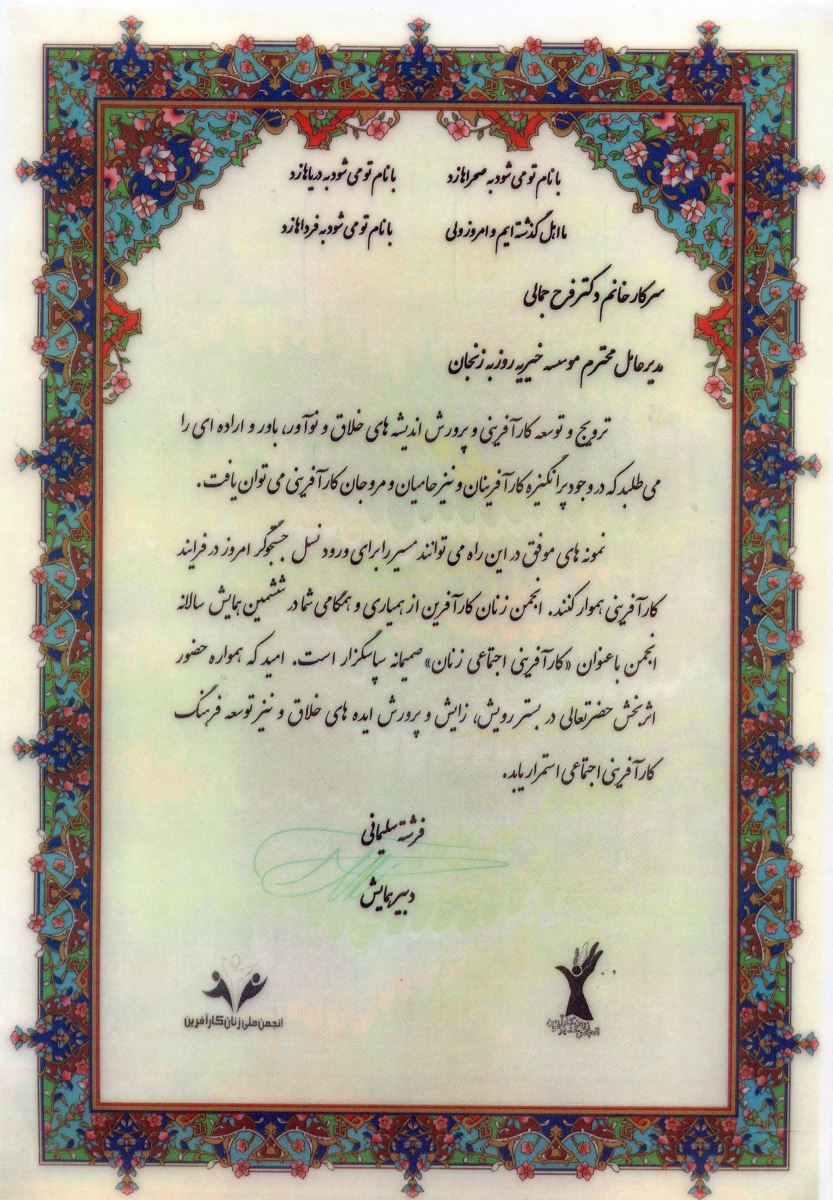 با نام تو می شود به صحراها زد با نام تو می شود به دریاها زد
ما اهل گذشته ایم و امروز ولی با نام تو می شود به فرداها زد
سرکار خانم دکتر فرح جمالی
مدیرعامل محترم موسسه خیریه روزبه زنجان
ترویج و توسعه کارآفرینی و پرورش اندیشه های خلاق و نوآور، باور و اراده ای را
می طلبد که در وجود پرانگیزه کارآفرینان و نیز حامیان و مروجان کارآفرینی می توان یافت.
نمونه های موفق در این راه می توانند مسیر را برای ورود نسل جستجوگر امروز در فرایند
کارآفرینی هموار کنند. انجمن زنان کارآفرین از همیاری و همگامی شما در ششمین همایش سالانه
انجمن با عنوان «کارآفرینی اجتماعی زنان» صمیمانه سپاسگزار است. امید که همواره حضور
اثربخش حضرتعالی در بستر رویش، زایش و پرورش ایده های خلاق و نیز توسعه فرهنگ
کارآفرینی اجتماعی استمرار یابد.
فرشته سلیمانی
دبیر همایش
انجمن ملی زنان کارآفرین